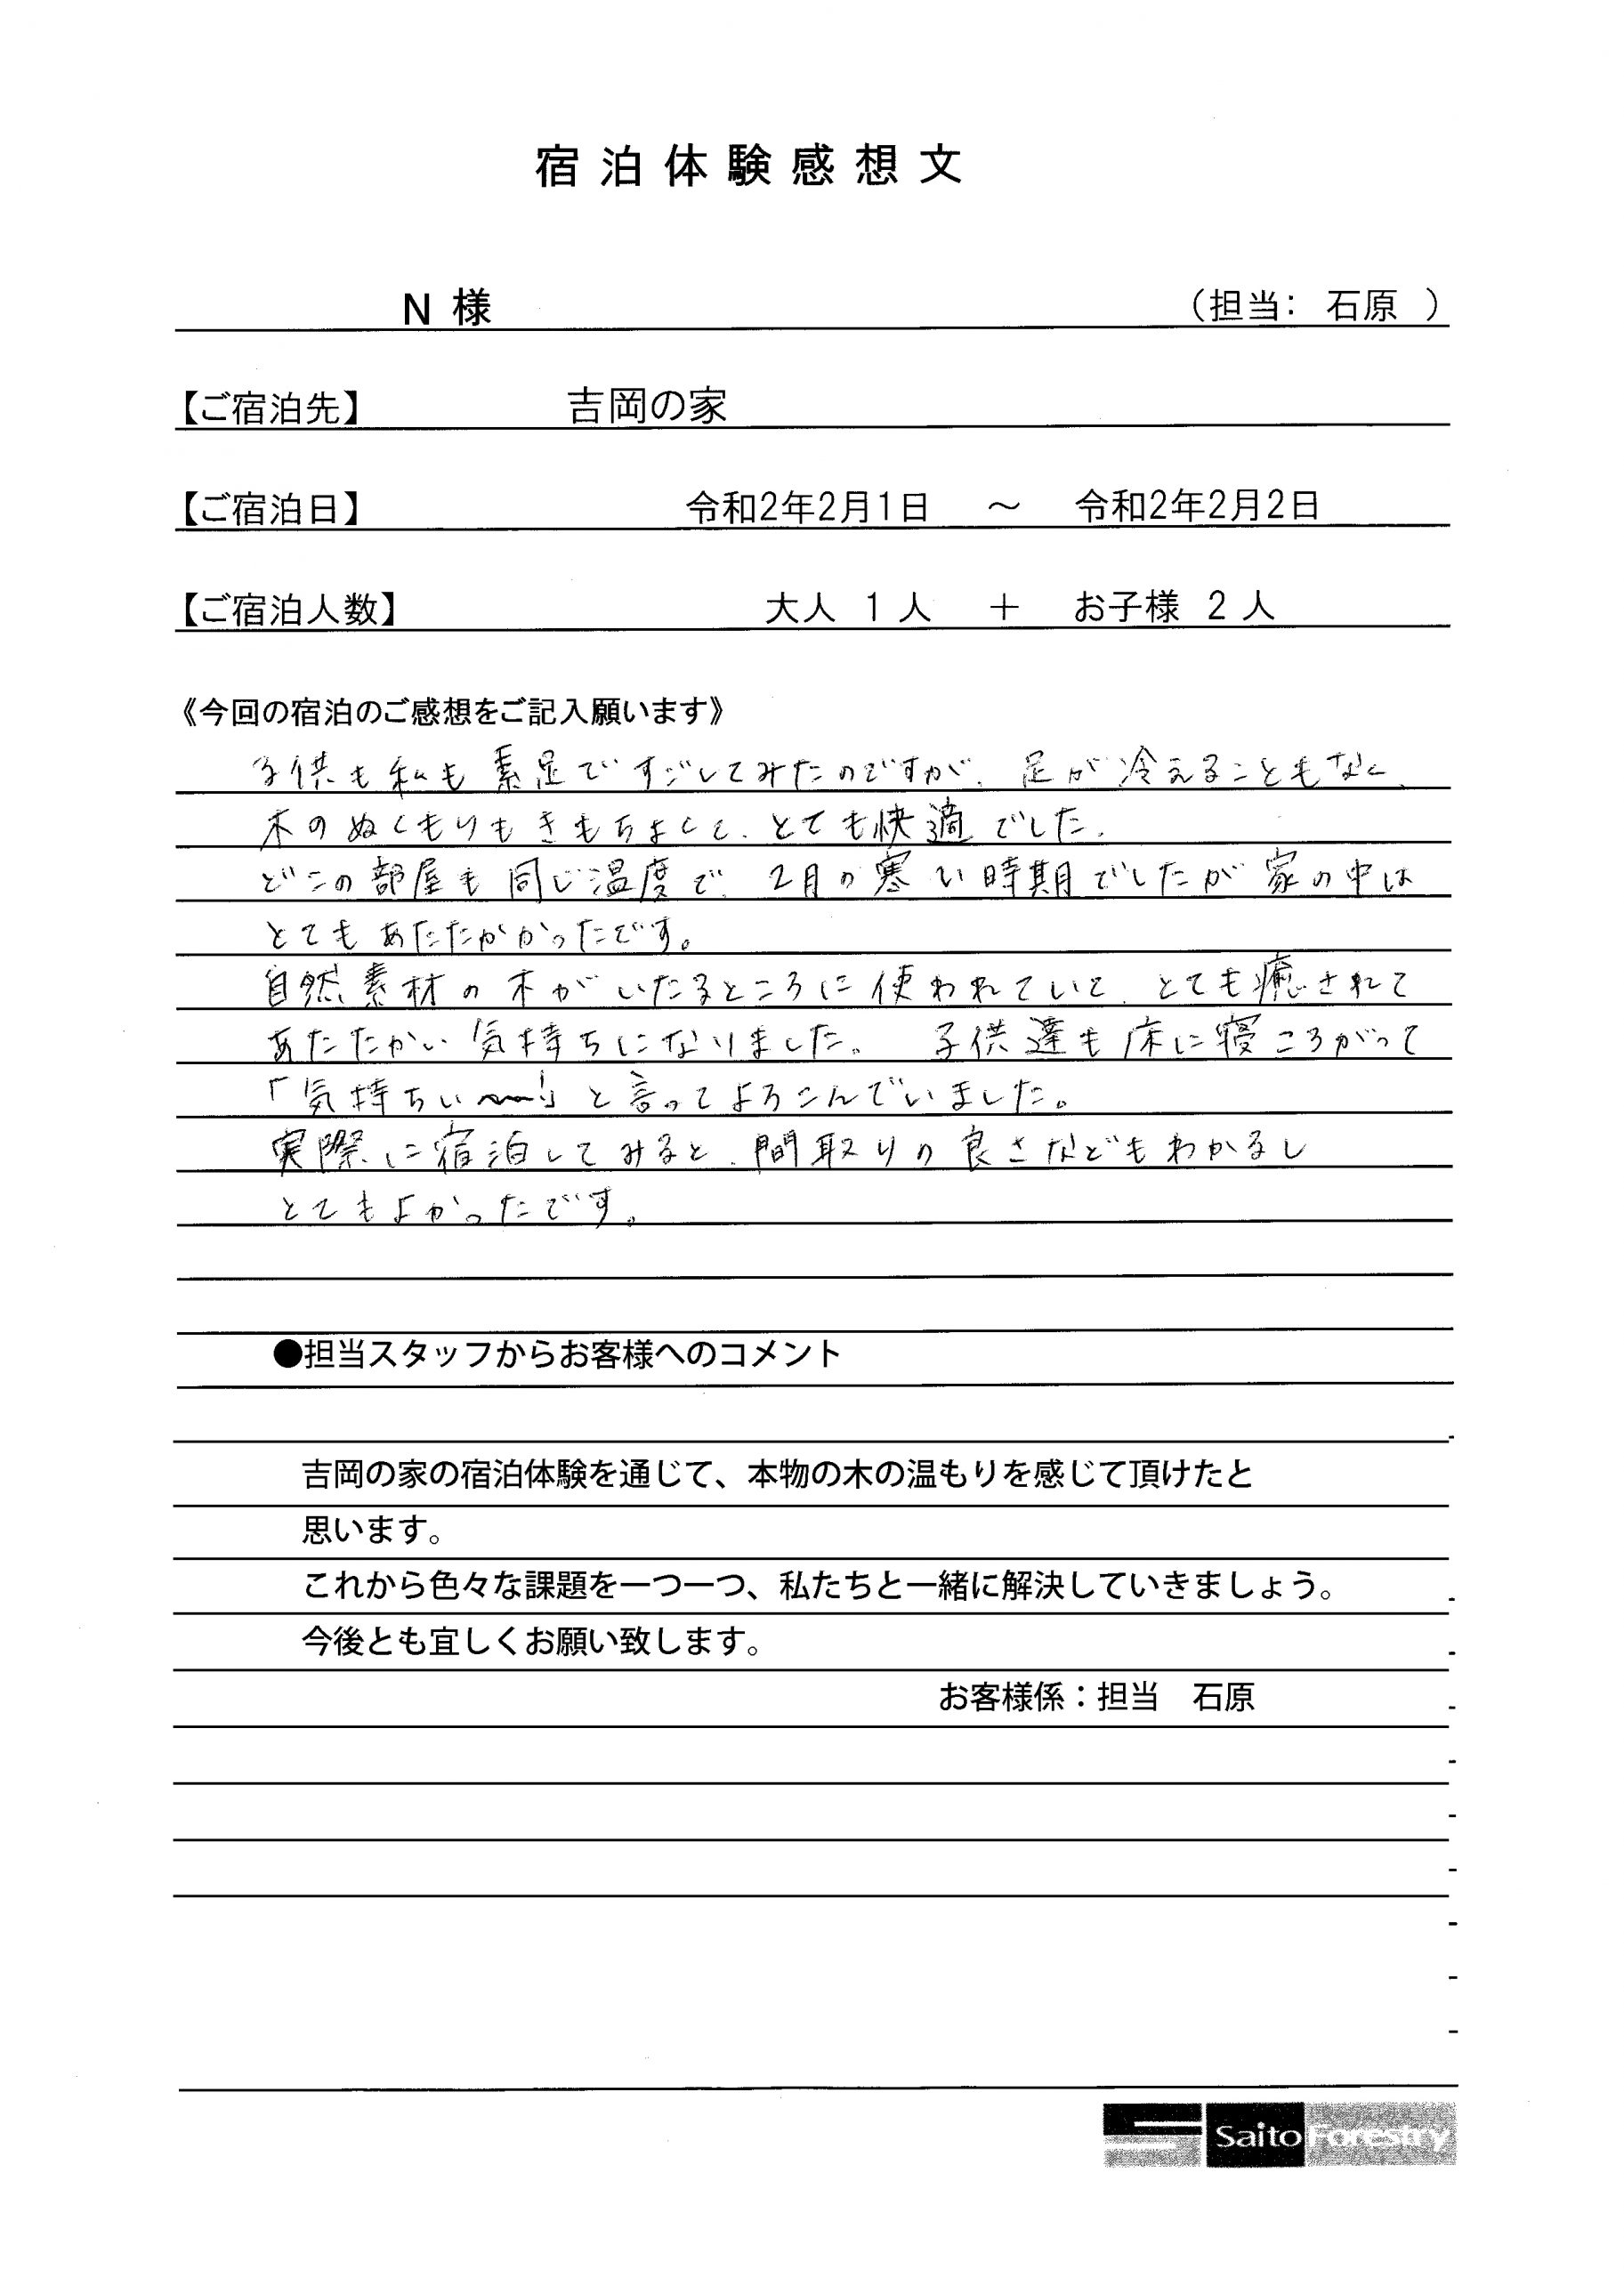 宿泊体験感想文
N 様 （担当： 石原 ）
【ご宿泊先】 吉岡の家
【ご宿泊日】 令和2年2月1日 ～ 令和2年2月2日
【ご宿泊人数】 大人 1 人 ＋ お子様 2 人
《今回の宿泊のご感想をご記入願います》
子供も私も素足ですごしてみたのですが、足が冷えることもなく、
木のぬくもりもきもちよくて、とても快適でした。
どこの部屋も同じ温度で、2月の寒い時期でしたが家の中は
とてもあたたかかったです。
自然素材の木がいたるところに使われていて、とても癒されて
あたたかい気持ちになりました。 子供達も床に寝ころがって
「気持ちい〜〜!」と言ってよろこんでいました。
実際に宿泊してみると、間取りの良さなどもわかるし
とてもよかったです。
●担当スタッフからお客様へのコメント
吉岡の家の宿泊体験を通じて、本物の木の温もりを感じて頂けたと
思います。
これから色々な課題を一つ一つ、私たちと一緒に解決していきましょう。
今後とも宜しくお願い致します。
お客様係：担当　石原
Saito Forestry